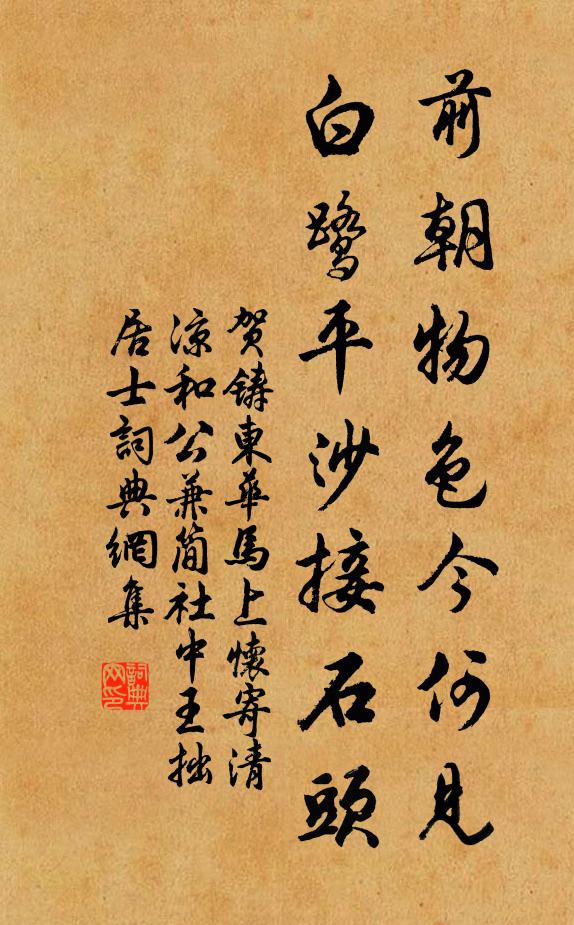 前朝物色今何見
白鷺平沙接石頭
賀鑄東華馬上懷寄清
涼和公兼簡社中王拙
居士詞典網集
詞典
网印